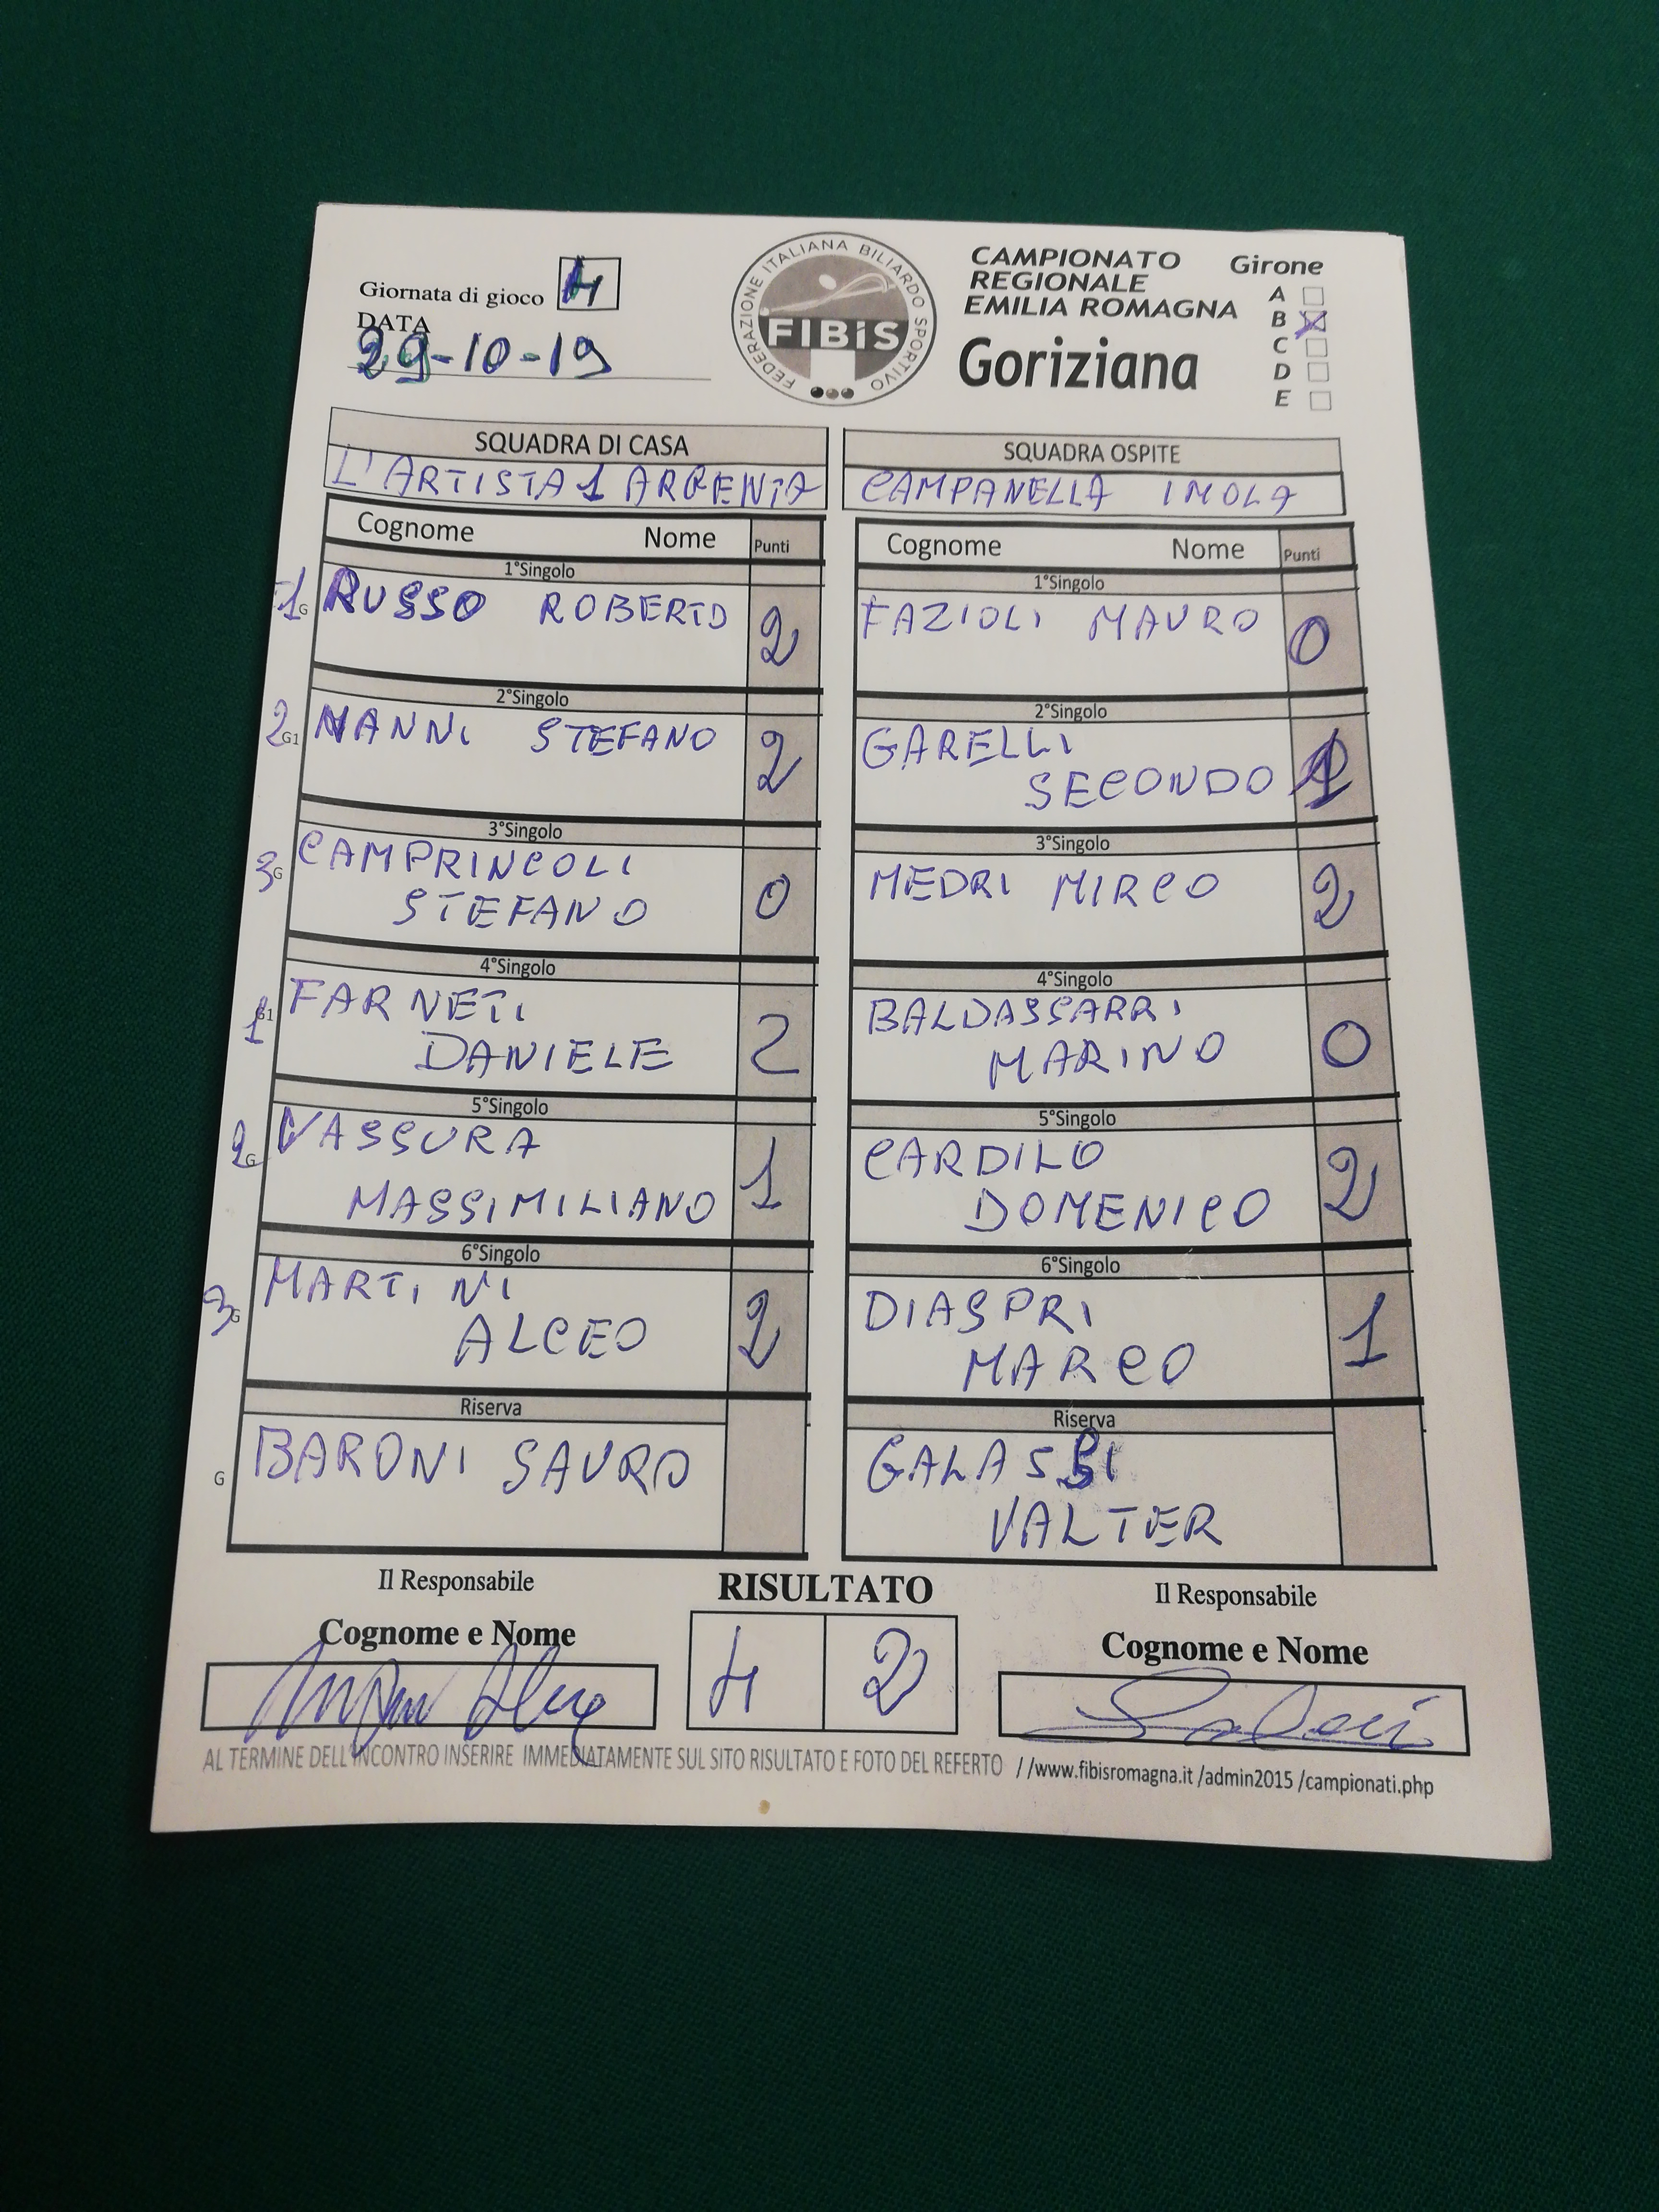 Giornata di gioco 4
DATA
29-10-19
FEDERAZIONE ITALIANA BILIARDO SPORTIVO
FIBiS
CAMPIONATO
REGIONALE
EMILIA ROMAGNA
Goriziana
Girone
A
B
C
D
E
SQUADRA DI CASA
L'ARTISTA 1 ARGENTA
Cognome Nome Punti
1°Singolo
1G RUSSO ROBERTO 2
2°Singolo
2G1 NANNI STEFANO 2
3°Singolo
3G CAMPRINCOLI
STEFANO 0
4°Singolo
1G1 FARNETI
DANIELE 2
5°Singolo
2G VASSURA
MASSIMILIANO 1
6°Singolo
3G MARTINI
ALCEO 2
Riserva
G BARONI SAURO
SQUADRA OSPITE
CAMPANELLA IMOLA
Cognome Nome Punti
1°Singolo
FAZIOLI MAURO 0
2°Singolo
GARELLI
SECONDO 1
3°Singolo
MEDRI MIRCO 2
4°Singolo
BALDASSARRI
MARINO 0
5°Singolo
CARDILO
DOMENICO 2
6°Singolo
DIASPRI
MARCO 1
Riserva
GALASSI
VALTER
Il Responsabile
Cognome e Nome
RISULTATO
4 2
Il Responsabile
Cognome e Nome
AL TERMINE DELL'INCONTRO INSERIRE IMMEDIATAMENTE SUL SITO RISULTATO E FOTO DEL REFERTO //www.fibisromagna.it /admin2015 /campionati.php